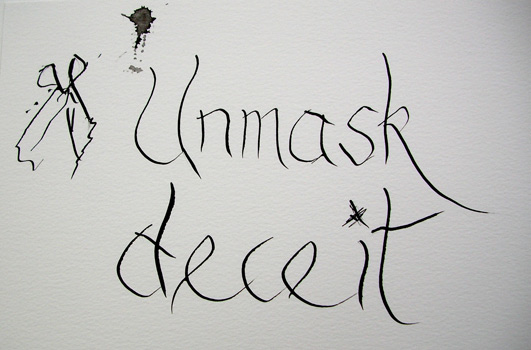 Unmask
deceit